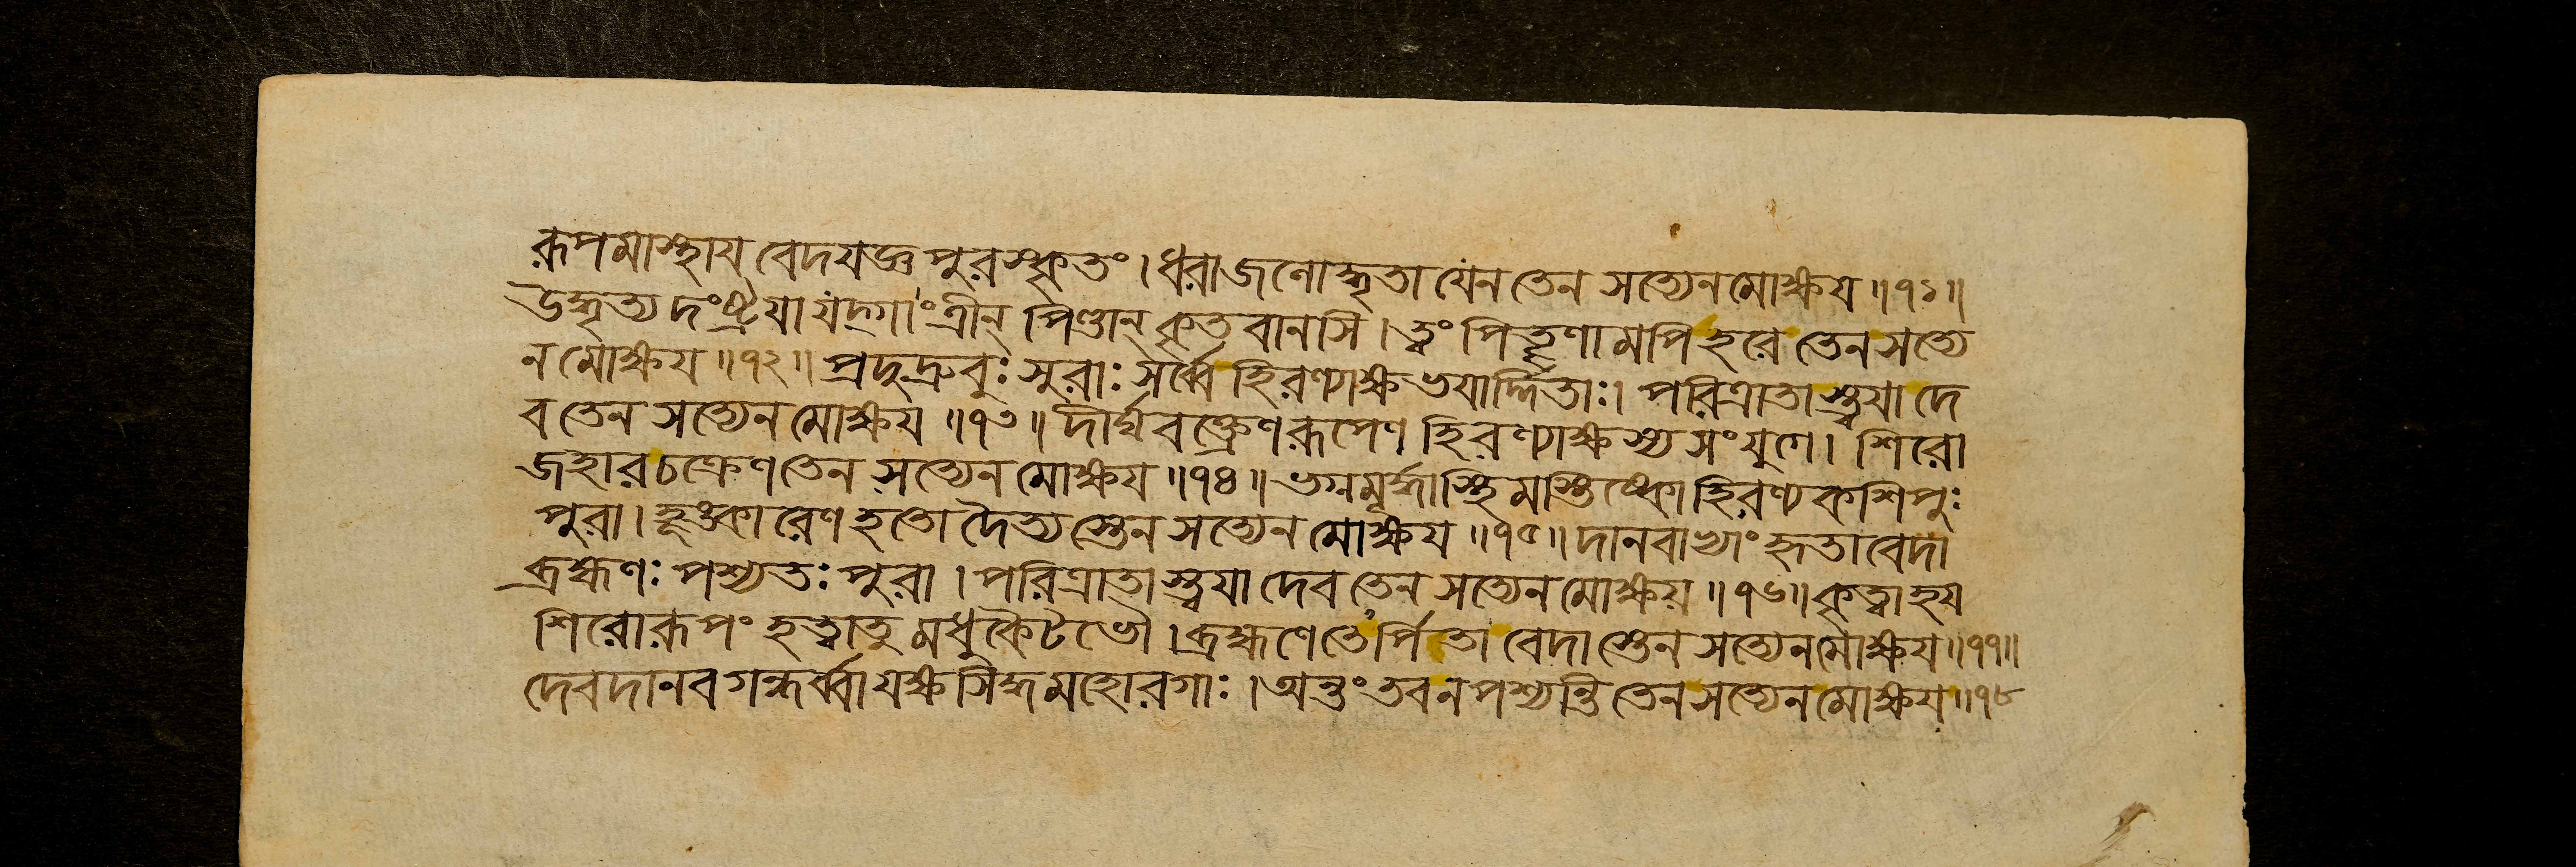 রূপমাস্থায বেদযজ্ঞপুরস্কৃতং। ধরাজনোদ্ধৃতা যেন তেন সত্যেন মোক্ষয ॥৭১॥
উদ্ধৃত্য দংষ্ট্রযা যদ্গাং ত্রীন্ পিণ্ডান্ কৃতবানসি। ত্বং পিতৄণামপি হরে তেন সত্যে
ন মোক্ষয ॥৭২॥ প্রদুদ্রুবুঃ সুরাঃ সর্ব্বে হিরণ্যাক্ষভযার্দ্দিতাঃ। পরিত্রাতাস্ত্বযা দে
ব তেন সত্যেন মোক্ষয ॥৭৩॥ দীর্ঘবক্ত্রেণ রূপেণ হিরণ্যাক্ষস্য সংযুগে। শিরো
জহার চক্রেণ তেন সত্যেন মোক্ষয ॥৭৪॥ ভগ্নমূর্দ্ধাস্থিমস্তিষ্কো হিরণ্যকশিপুঃ
পুরা। হূঙ্কারেণ হতো দৈত্যস্তেন সত্যেন মোক্ষয ॥৭৫॥ দানবাখ্যাং হৃতা বেদা
ব্রহ্মণঃ পশ্যতঃ পুরা। পরিত্রাতাস্ত্বযা দেব তেন সত্যেন মোক্ষয় ॥৭৬॥ কৃত্বা হয
শিরোরূপং হত্বা তু মধুকৈটভৌ। ব্রহ্মণে তেঽর্পিতা বেদাস্তেন সত্যেন মোক্ষয ॥৭৭॥
দেবদানবগন্ধর্ব্বা যক্ষসিদ্ধমহোরগাঃ। অন্তং তব ন পশ্যন্তি তেন সত্যেন মোক্ষয ॥৭৮